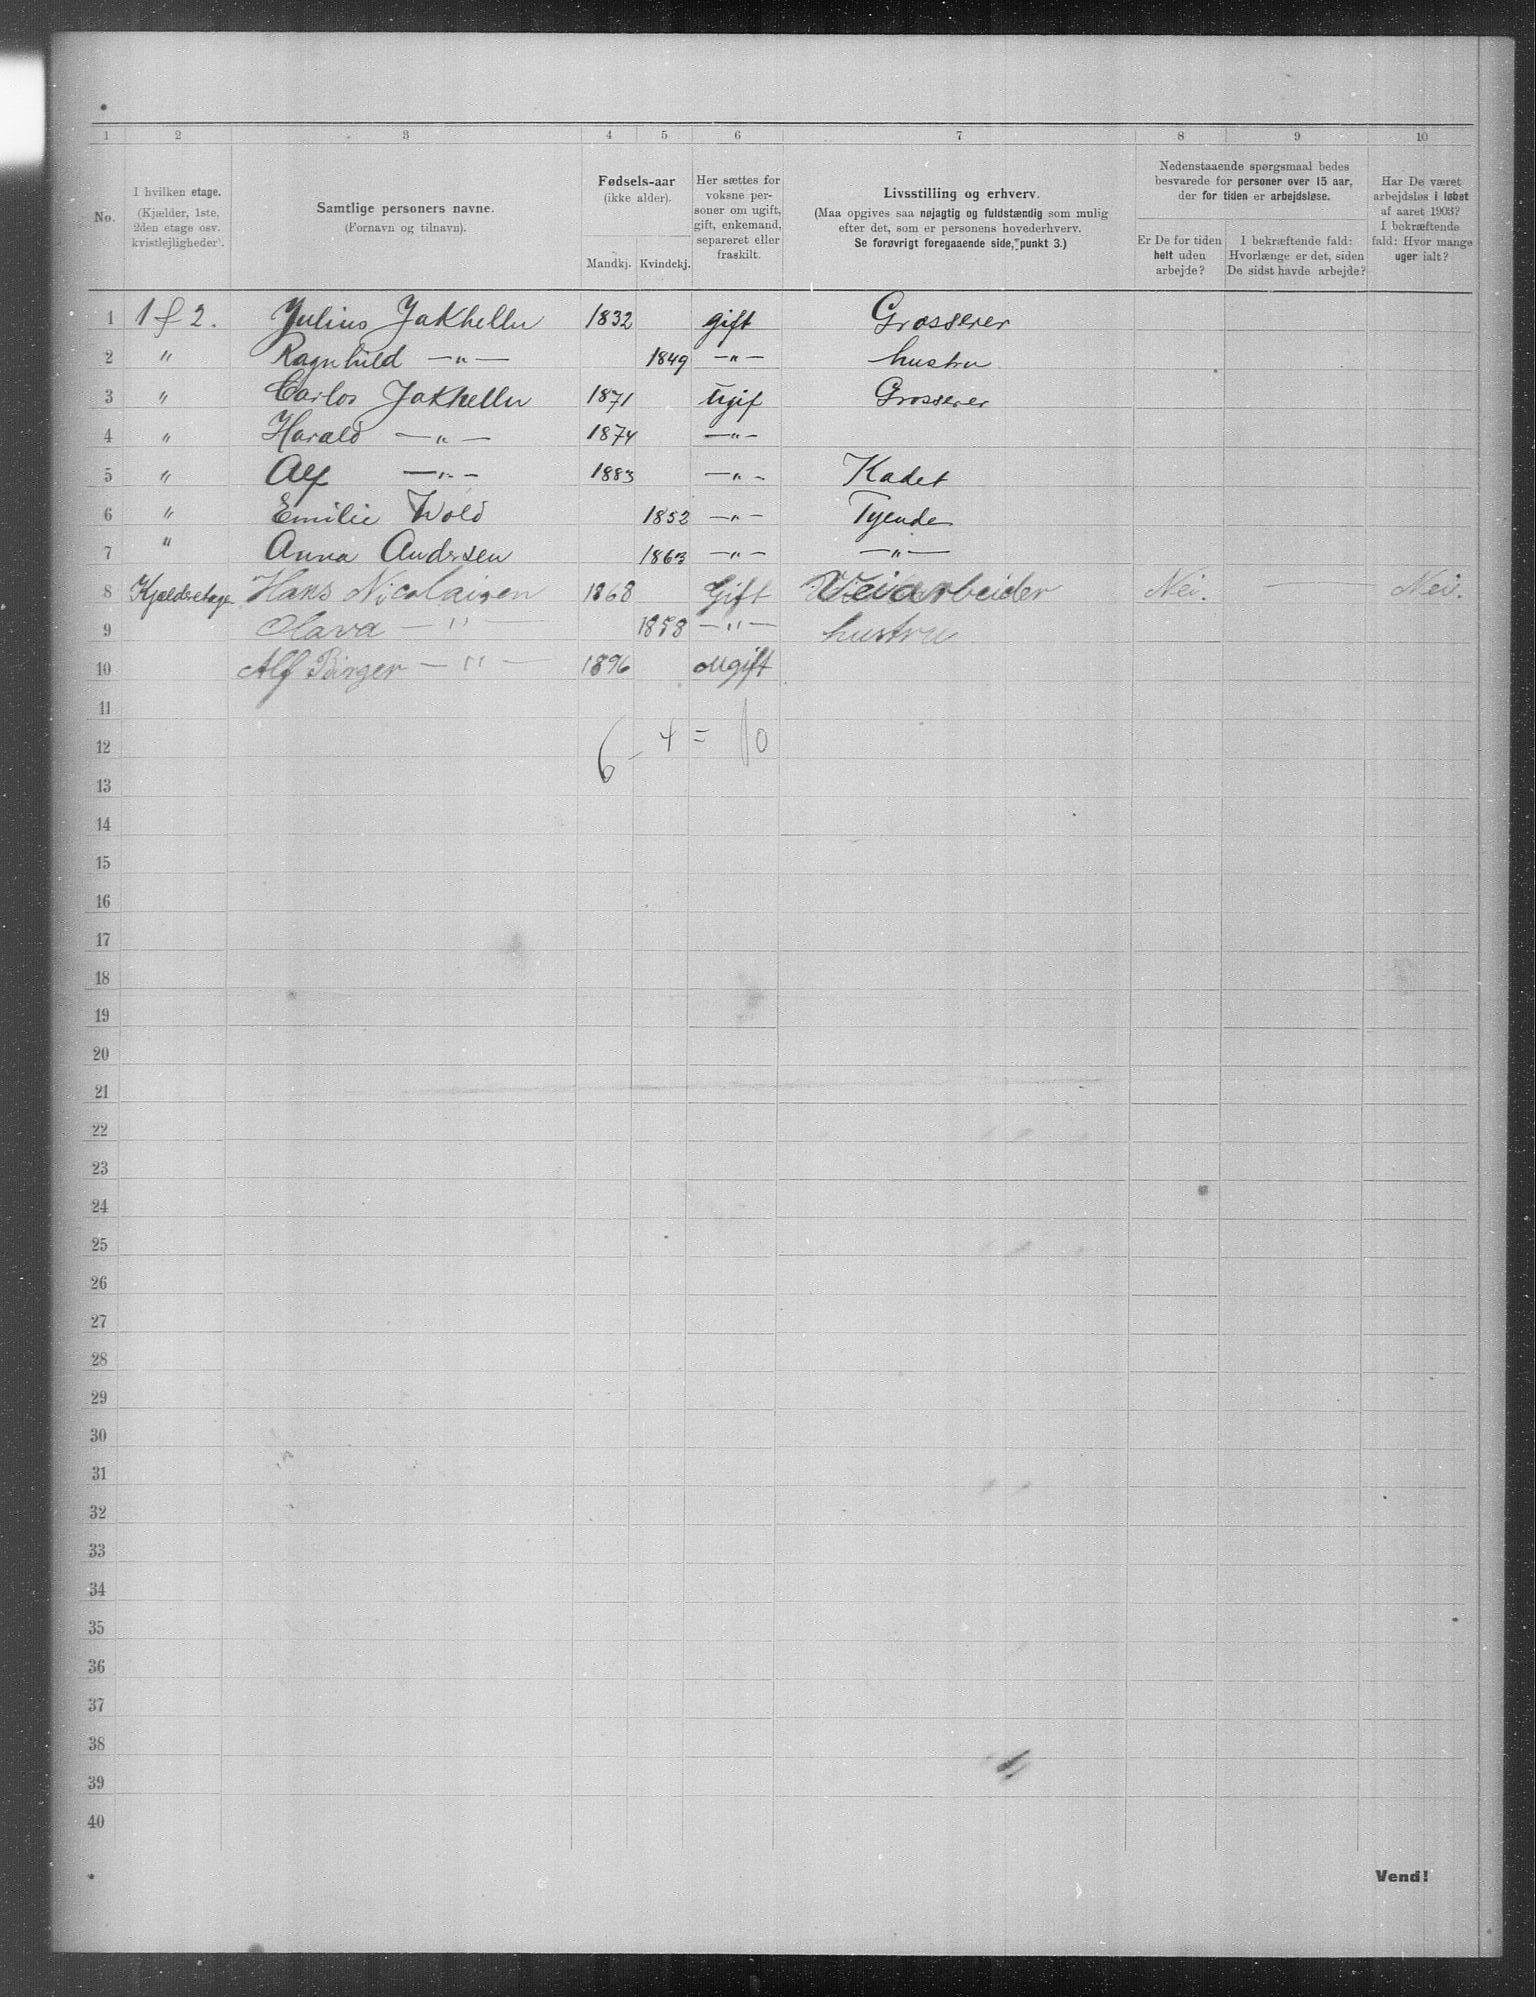 1 2 3 4 5 6 7 8 9 10
No.
I hvilken etage.
(Kjælder, 1ste,
2den etage osv.
kvistlejligheder).
Samtlige personers navne.
(Fornavn og tilnavn).
Fødsels-aar
(ikke alder).
Mandkj. Kvindekj.
Her sættes for
voksne per-
soner om ugift,
gift, enkemand,
separeret eller
fraskilt.
Livsstilling og erhverv.
(Maa opgives saa nøjagtig og fuldstændig som mulig
efter det, som er personens hovederhverv.
Se forøvrigt foregaaende side, punkt 3.)
Nedenstaaende spørgsmaal bedes
besvarede for personer over 15 aar,
der for tiden er arbejdsløse.
Er De for tiden
helt uden
arbejde?
I bekræftende fald:
Hvorlænge er det, siden
De sidst havde arbejde?
Har De været
arbejdsløs i løbet
af aaret 1903?
I bekræftende
fald: Hvor mange
uger ialt?
1 1 & 2. Julius Jakhelln 1832 gift Grosserer
2 " Ragnhild —"— 1849 —"— hustru
3 " Carlos Jakhelln 1871 Ugif Grosserer
4 " Harald —"— 1874 —"—
5 " Alf —"— 1883 —"— Kadet
6 " Emilie Wold 1852 —"— Tyende
7 " Anna Andersen 1863 —"— —"—
8 Kjælderetage Hans Nicolaisen 1868 Gift Veiarbeider Nei. — Nei.
9 Olava —"— 1858 —"— hustru
10 Alf Birger —"— 1896 Ugift
11
12 6 - 4 = 10
13
14
15
16
17
18
19
20
21
22
23
24
25
26
27
28
29
30
31
32
33
34
35
36
37
38
39
40
Vend!